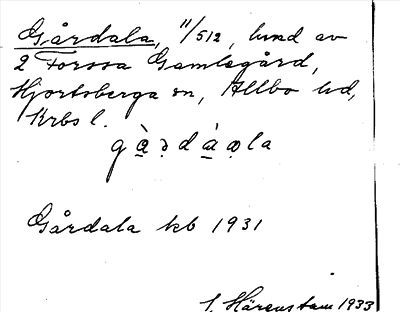 Gårdala, 11/512, lund av
2 Forssa Gamlegård,
Hjortsberga sn, Allbo hd,
Krbs l.
gàrdàala
Gårdala kb 1931
S. Härenstam 1933